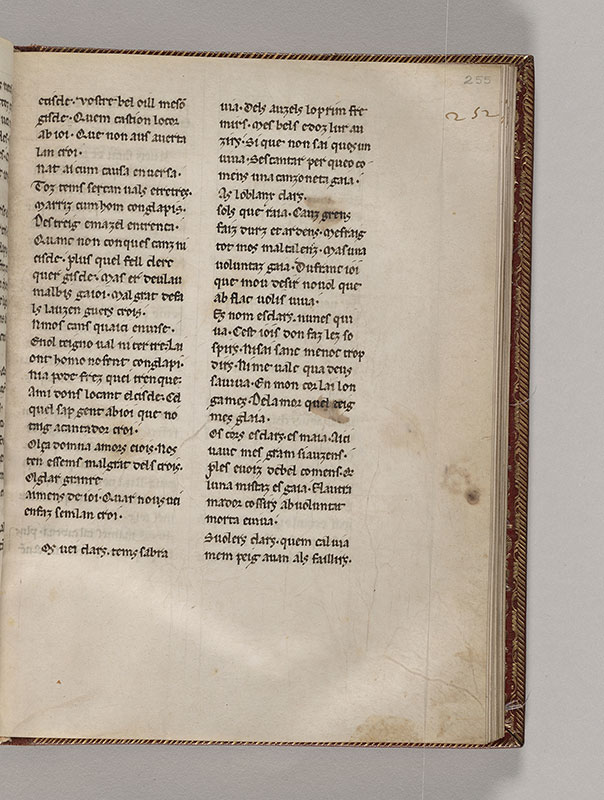 255
252
cisde. Vostre bel oill meso
gisde. Quem castion locor
ab ioi. Que non aus auerta
lan croi.
Nat ai cum causa enuersa.
Toz tems sercan uals e tertres.
Marriz cum hom conglapis.
Destreig e mazel e trenca.
Quanc non conques canz ni
cisde. plus quel fell clerc
quer gisde. Mas er deu lau
malbis gaioi. Malgrat defa
ls lauzen guers crois.
Nmos cans quaici enuise.
Enol teigno ual ni tertre. La
ont homo no sent conglapi.
Nia pode frez quei trenque.
Ami dons lo cant el cisde. Ed
quel sap gent ab ioi que no
teig a cantador croi.
Olça domna amors e iois. Nos
ten essems malgrat dels crois.
Oglar granre
aimens de ioi. Quar nous uei
en faz semlan croi.
Os uei clars. tems sabra
uia. Dels auzels lo prim fre
mirs. Mes bels e doz lur au
zirs. Si que non sai ques un
uiua. Ses cantar per queo co
mens una canzoneta gaia.
As lo blanc clars.
sols que raia. Canz grens
faiz durz et ardens. Mefraig
tot mos mal talenz. Mas una
voluntaz gaia. Dufranc ioi
que mou desir no uol que
ab flac uolis uiua.
Es nom esclars. nunes qui
ua. Cest iois don faz lez so
spirs. Ni sai sanc menoc trop
dirs. Ni me uale qua deus
sauuia. En mon cor lai lon
games. Del amor quel teig
mes glaia.
Os cors es clars. es maia. Aici
vauc mes gram siauzens.
ples euoiz de bel comens. &
luna mistaz es gaia. E l autra
mador cossirs ab uoluntat
morta e uiua.
Suoleis clars. quem caliuia
mem peig auan als faillirs.